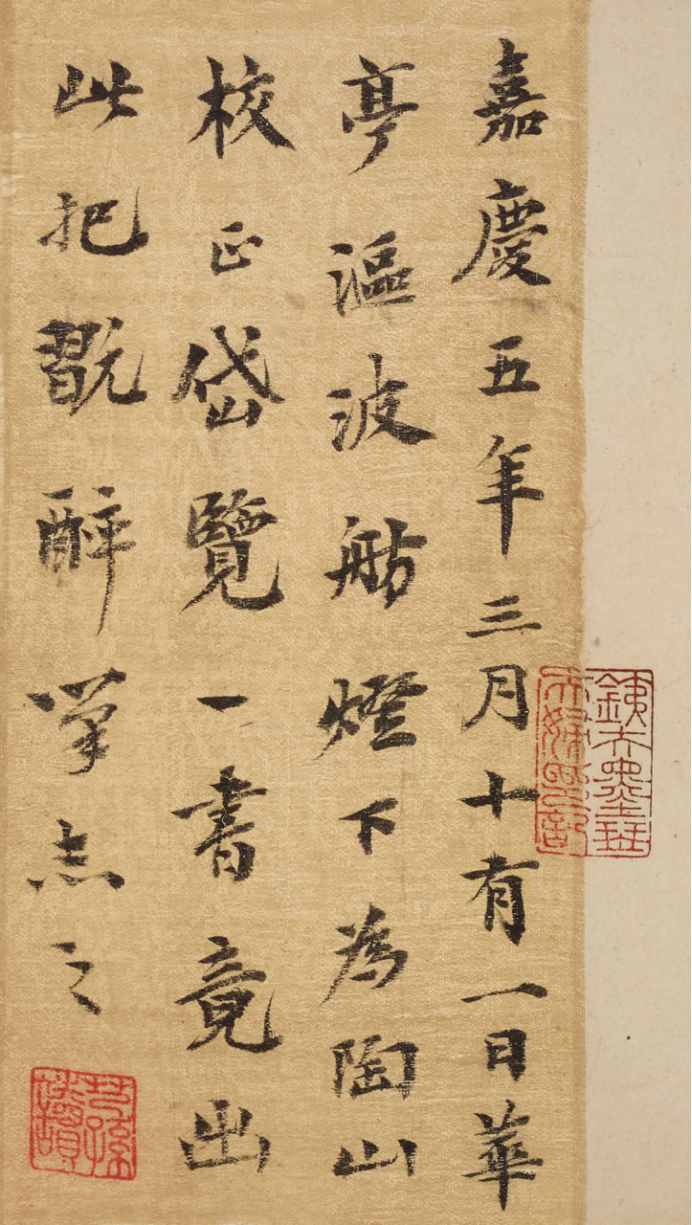 嘉慶五年三月十有一日華
亭漚波舫燈下為陶山
校正岱覽一書竟出
此把翫醉筆志之